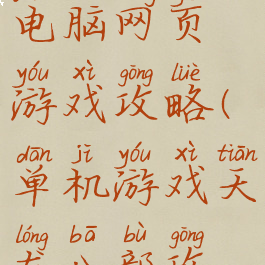 电脑网页
yóu xì gōng lüè
游戏攻略(
dān jī yóu xì tiān
单机游戏天
lóng bā bù gōng